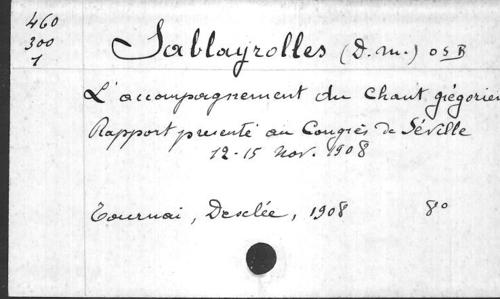 460
300
1
Sablayrolles (D. M.) OSB
L'accompagnement du chant grégorien
Rapport presenté au Congrès de Séville
12-15 Nov. 1908
Tournai, Desclée, 1908 8°